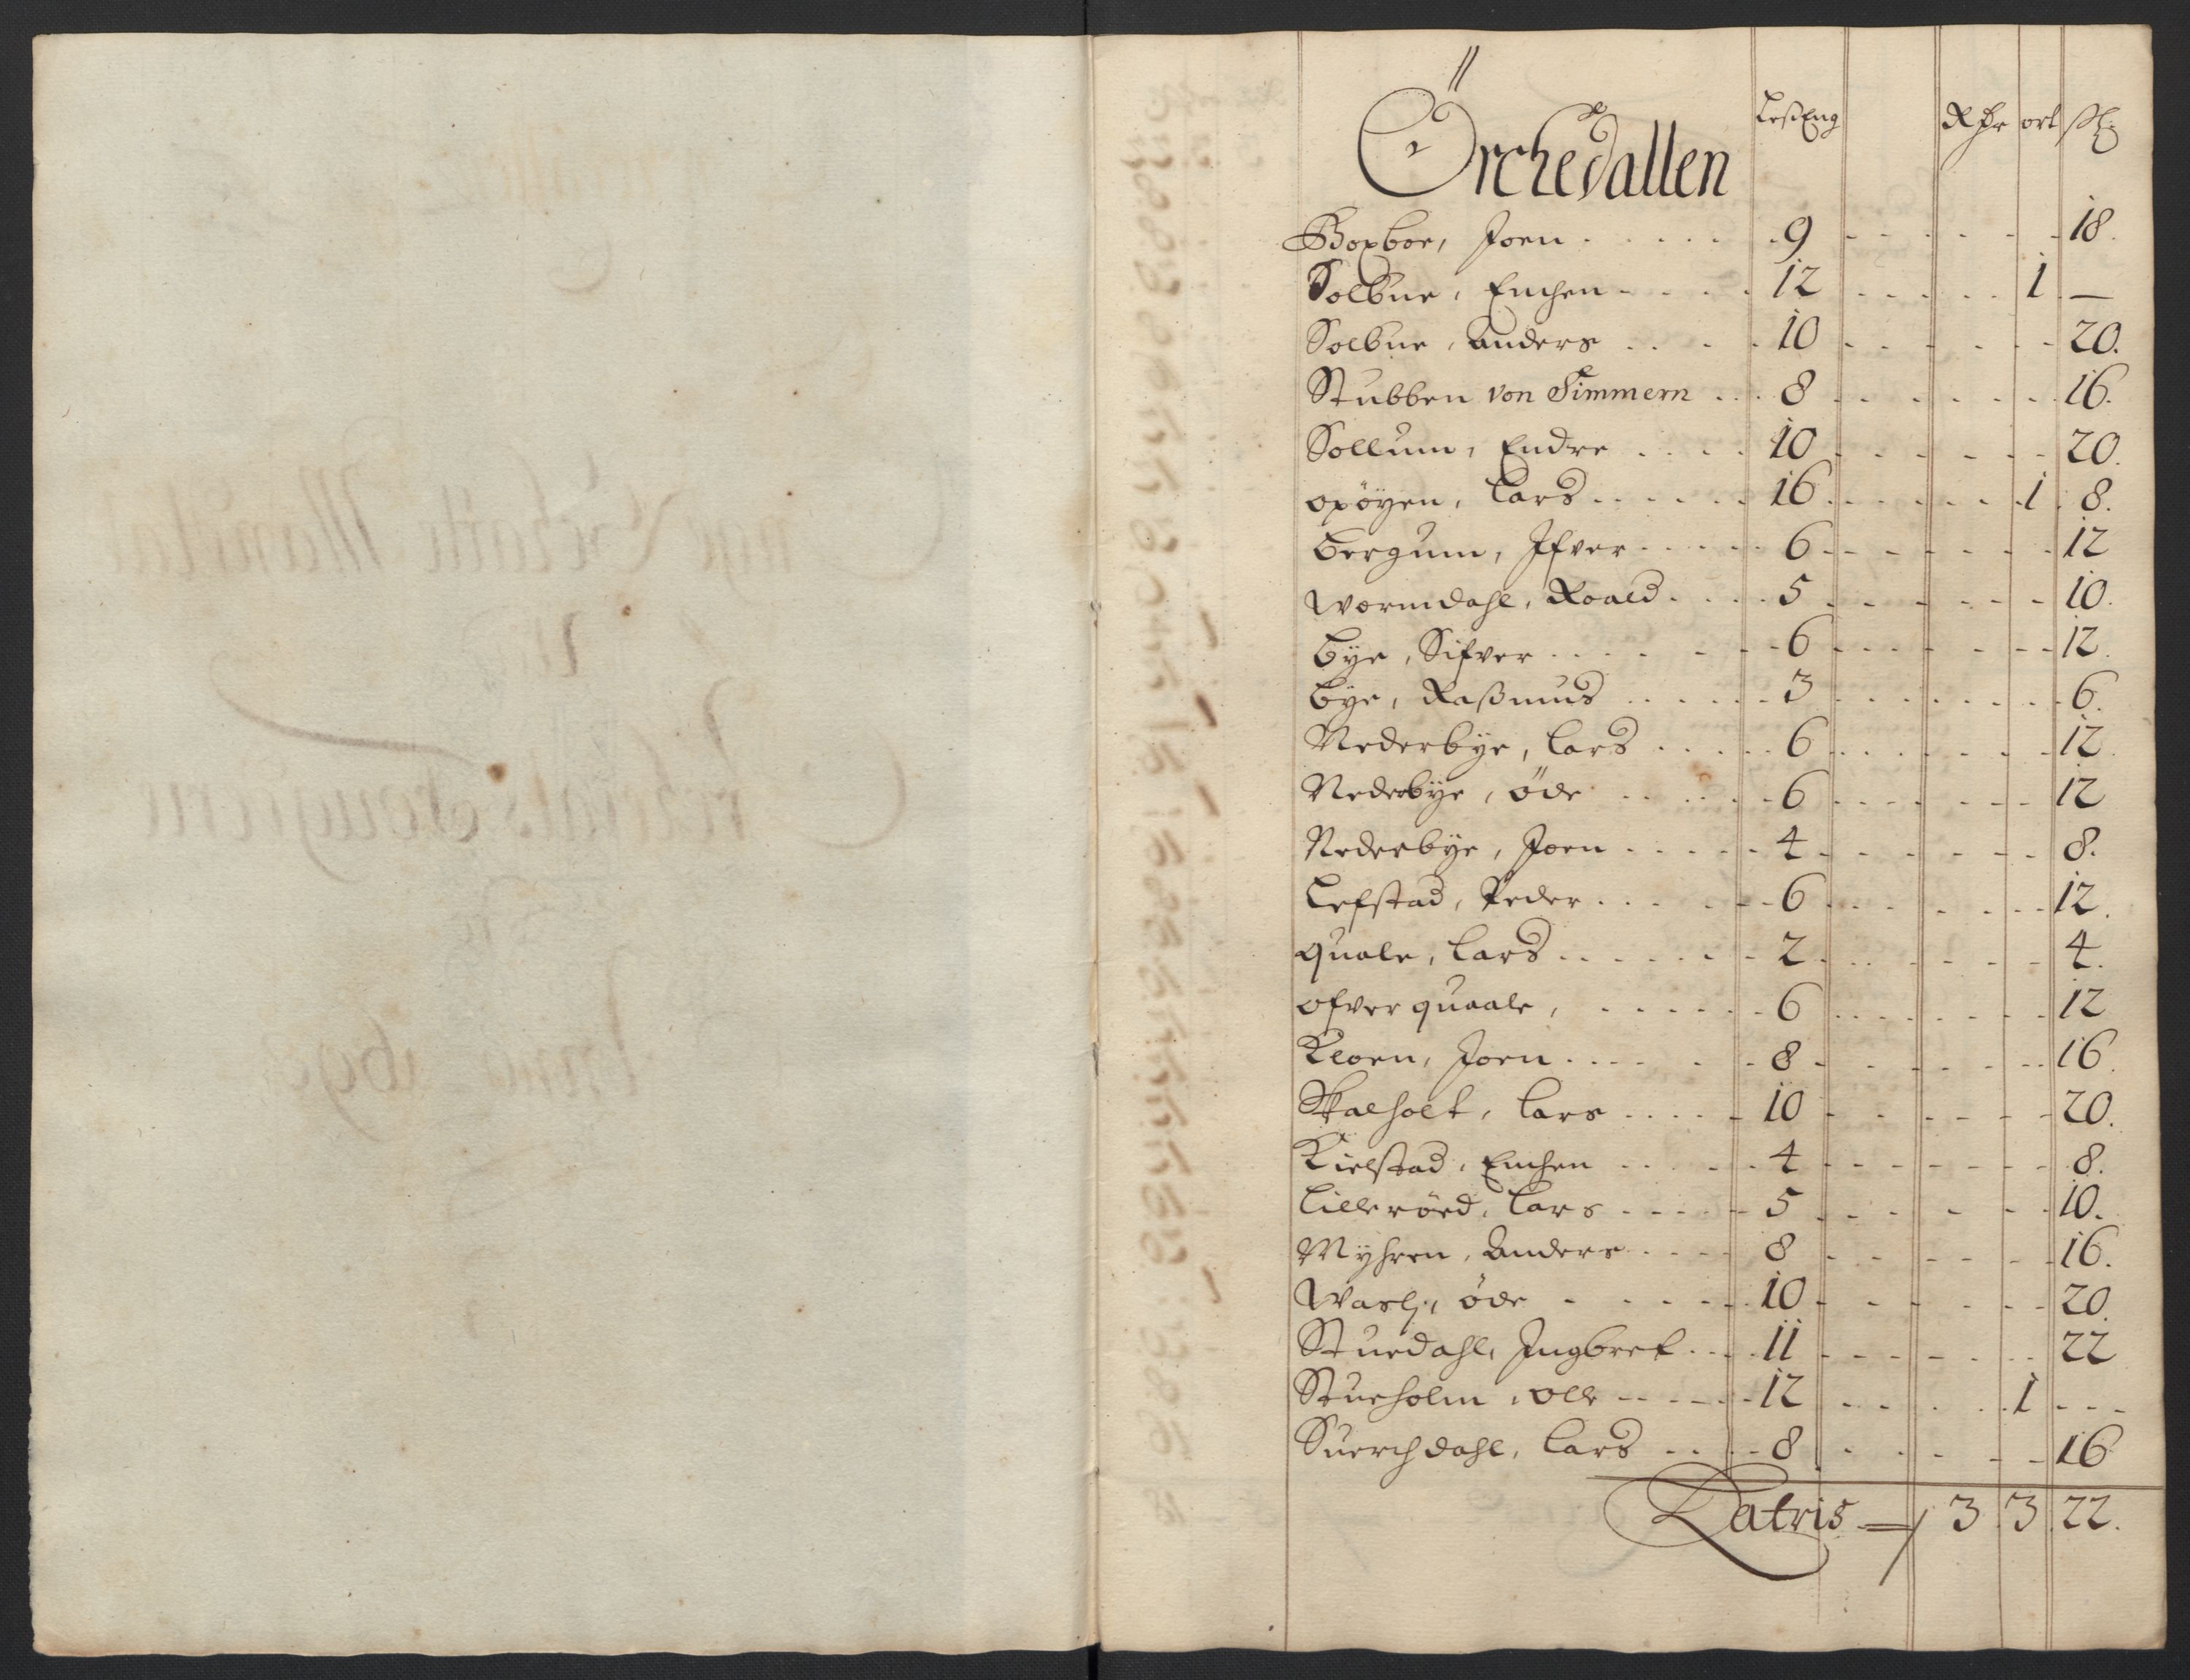 Örchedallen
Leßeng Rdr ort ß
Boxboe, Joen 9 18.
Solbue, Enchen 12 1 —
Solbue, Anders 10 20.
Stubben von Timmern 8 16.
Sollum, Endre 10 20.
oxöyen, Lars 16 1 8.
Bergum, Ifver 6 12
Wormdahl, Roald 5 10.
Bye, Sifver 6 12.
Bye, Raßmus 3 6.
Nederbye, Lars 6 12
Nederbye, öde 6 12
Nederbye, Joen 4 8.
Lefstad, Peder 6 12.
quale, Lars 2 4.
ofver quaale, 6 12
Kloen, Joen 8 16.
Skalholt, Lars 10 20.
Kielstad, Enchen 4 8.
Lilleröed, Lars 5 10.
Myhren, Anders 8 16.
öde 10 20.
Stuedahl, Ingbret 11 22
Stueholm, olle 12 1 - - -
Suerchdahl, Lars 8 16
Latris 3 3 22.